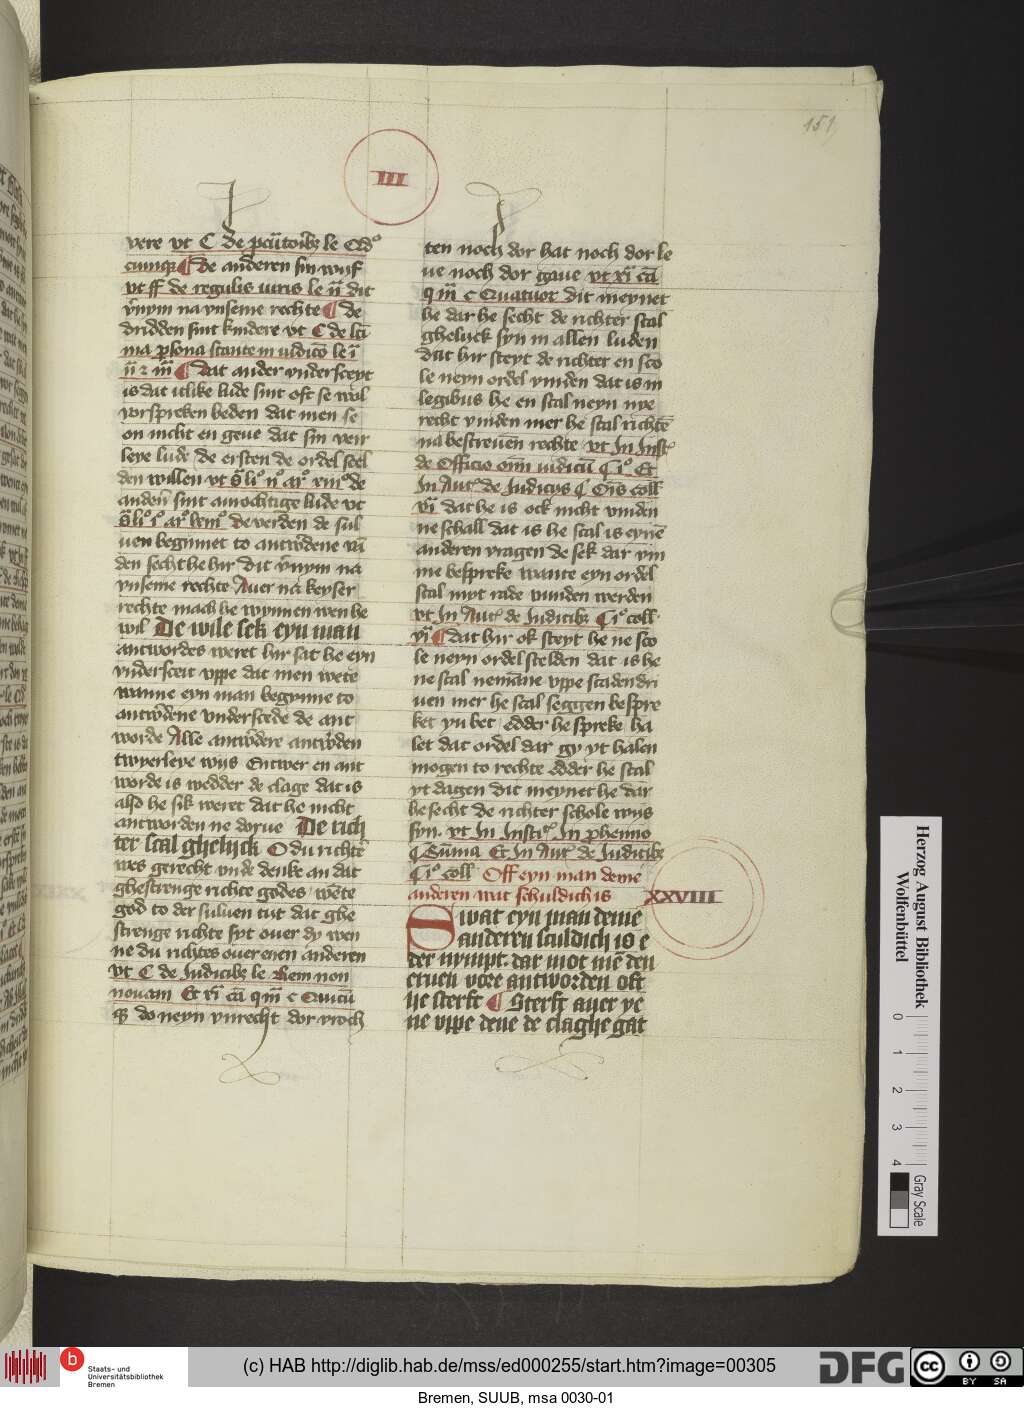 III
151
vere vt C de pcutoribꝫ le Cidº
cumqꝫ ¶ de anderen sin wyf
vt ff de regulis iuris le ii dit
vʼnym na vnseme rechte ¶ de
dridden sint kindere vt C de
ma psona stante in iudicō le i
ii ⁊ iii ¶ dat ander vndersceyt
is dat itlike lude sint oft se wol
vorspreken beden dat men se
on nicht en geue dat sin veir
leye lude de ersten de ordel scel
den wullen vt s liº iiº arº xiiiº de
anderē sint amochtige lude vt
s liº iº arº de verden de sul
uen begynnet to antwʼdene
den secht he hir dit vʼnym na
vnseme rechte Auer na keyser
rechte mach he wynnen wen he
wil De wile sek eyn man
antwordes weret hir sat he eyn
vnderscert vppe dat men wete
wanne eyn man begynne to
antwʼdene vnderscede de ant
worde Alle antwʼdere antwʼden
twyerleye wys Entwer en ant
worde is wedder de clage dat is
also he sik weret dat he nicht
antworden ne dorue De rich
ter scal ghelijck O du richtē
wes gerecht vnde denke an dat
ghestrenge richte godes wēte
god to der suluen tijt dat ghe
strenge richte syt ouer dy wen
ne du richtes ouer enen anderen
vt C de Iudicibꝫ le Rem non
nouam Et xi cā q iii c Cuicū
qꝫ do neyn vnrecht dor vroch
ten noch dor hat noch dor le
ue noch dor gaue vt xi cā
q iii c Quatuor dit meynet
he dar he secht de richter scal
ghelijck syn in allen luden
dat hir steyt de richter en sco
le neyn ordel vinden dat is in
legibus he en scal neyn nye
recht vinden mer he scal richtē
na bescreuen rechte vt In Inst
de Officio iudicū ¶ iº Et
In Aut de Iudicijs ¶ Ois coll
vi dat he is ock nicht vinden
ne schall dat is he scal is eynē
anderen vragen de sek dar vm
me bespreke wante eyn ordel
scal myt rade vunden werden
vt In Aut de Iudicibꝫ ¶ iº coll
vi ¶ dat hir ok steyt he ne sco
le neyn ordel scelden dat is he
ne scal nemāne vppe scaden dri
uen mer he scal seggen bespre
ket yn bet edder he spreke ha
let dat ordel dar gy yt halen
mogen to rechte edder he scal
yt dagen dit meynet he dar
he secht de richter schole wijs
syn vt In Insti In phemio
¶ Sūma Et In Aut de Iudicibꝫ
¶ iº coll Off eyn man deme
anderen wat schuldich is XXVIII
Swat eyn man deme
anderen sculdich is e
der nympt dar mot mē den
eruen vore antworden oft
he sterft ¶ Sterft auer ye
ne vppe dene de claghe gat
Herzog August Bibliothek
Wolfenbüttel
0 1 2 3 4
Gray Scale
b
Staats- und
Universitätsbibliothek
Bremen
(c) HAB http://diglib.hab.de/mss/ed000255/start.htm?image=00305
DFG
cc BY SA
Bremen, SUUB, msa 0030-01